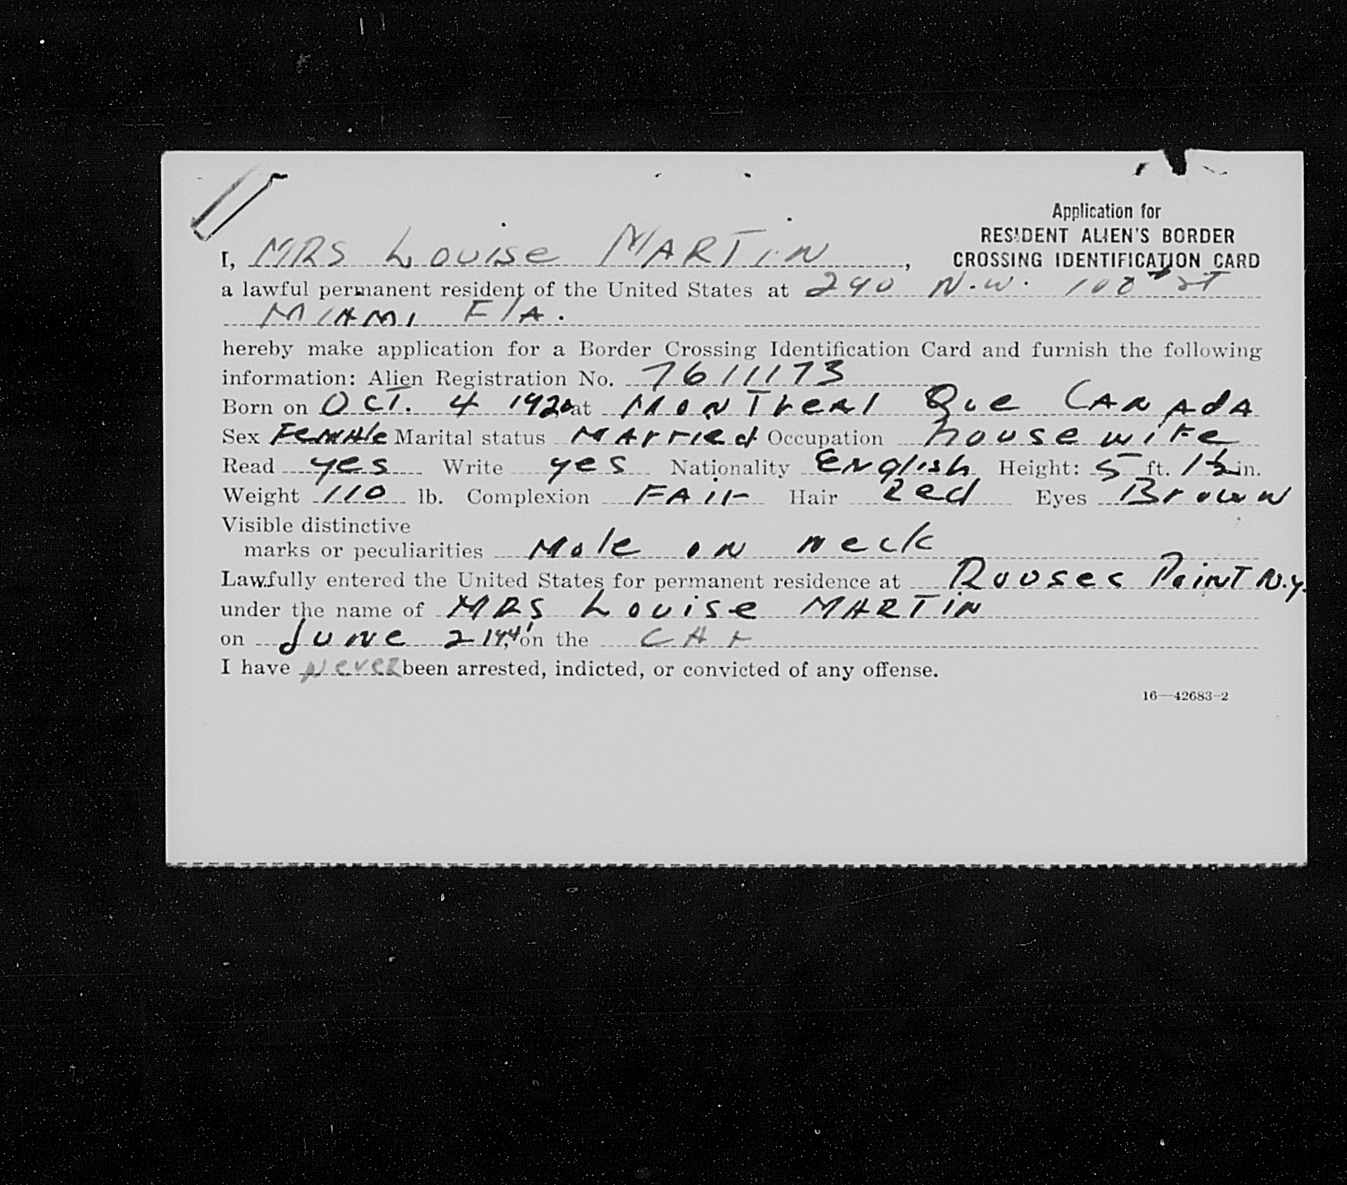 Application for
RESIDENT ALIEN'S BORDER
CROSSING IDENTIFICATION CARD
I, MRS Louise MARTIN,
a lawful permanent resident of the United States at 290 N.W. 108 ST
MIAMI Fla.
hereby make application for a Border Crossing Identification Card and furnish the following
information: Alien Registration No. 7611173
Born on OCT. 4 1920 at MONTreAl Que CANAdA
Sex FeMAle Marital status MArried Occupation housewife
Read yes Write yes Nationality English Height: 5 ft. 1½ in.
Weight 110 lb. Complexion FAir Hair Red Eyes Brown
Visible distinctive
marks or peculiarities Mole on neck
Lawfully entered the United States for permanent residence at Rouses PoinT N.y.
under the name of MRS Louise MARTIN
on JUNE 2 1941 on the CAr
I have never been arrested, indicted, or convicted of any offense.
16—42683-2